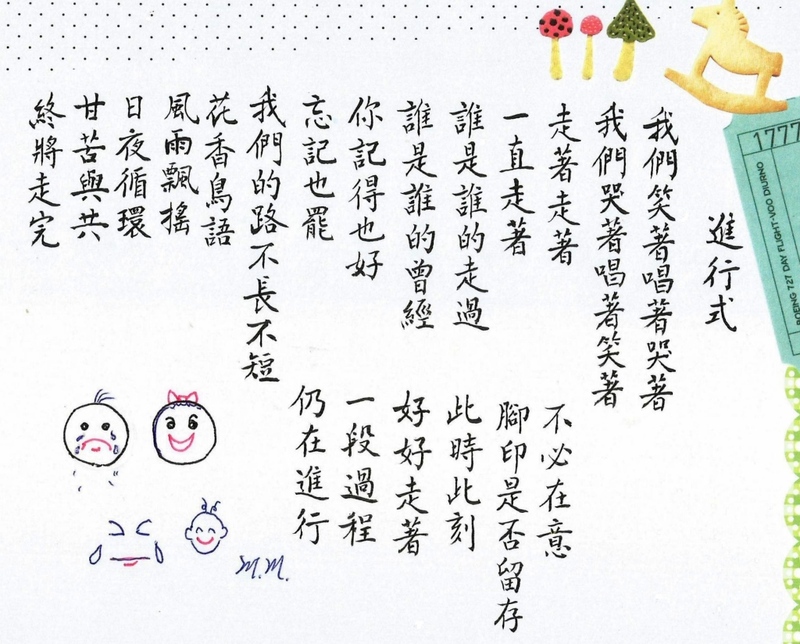 進行式
我們笑著唱著哭著
我們哭著唱著笑著
走著走著
一直走著
誰是誰的走過
誰是誰的曾經
你記得也好
忘記也罷
我們的路不長不短
花香鳥語
風雨飄搖
日夜循環
甘苦與共
終將走完
不必在意
腳印是否留存
此時此刻
好好走著
一段過程
仍在進行
M.M.
1777
BOEING 727 DAY FLIGHT-VOO DIURNO